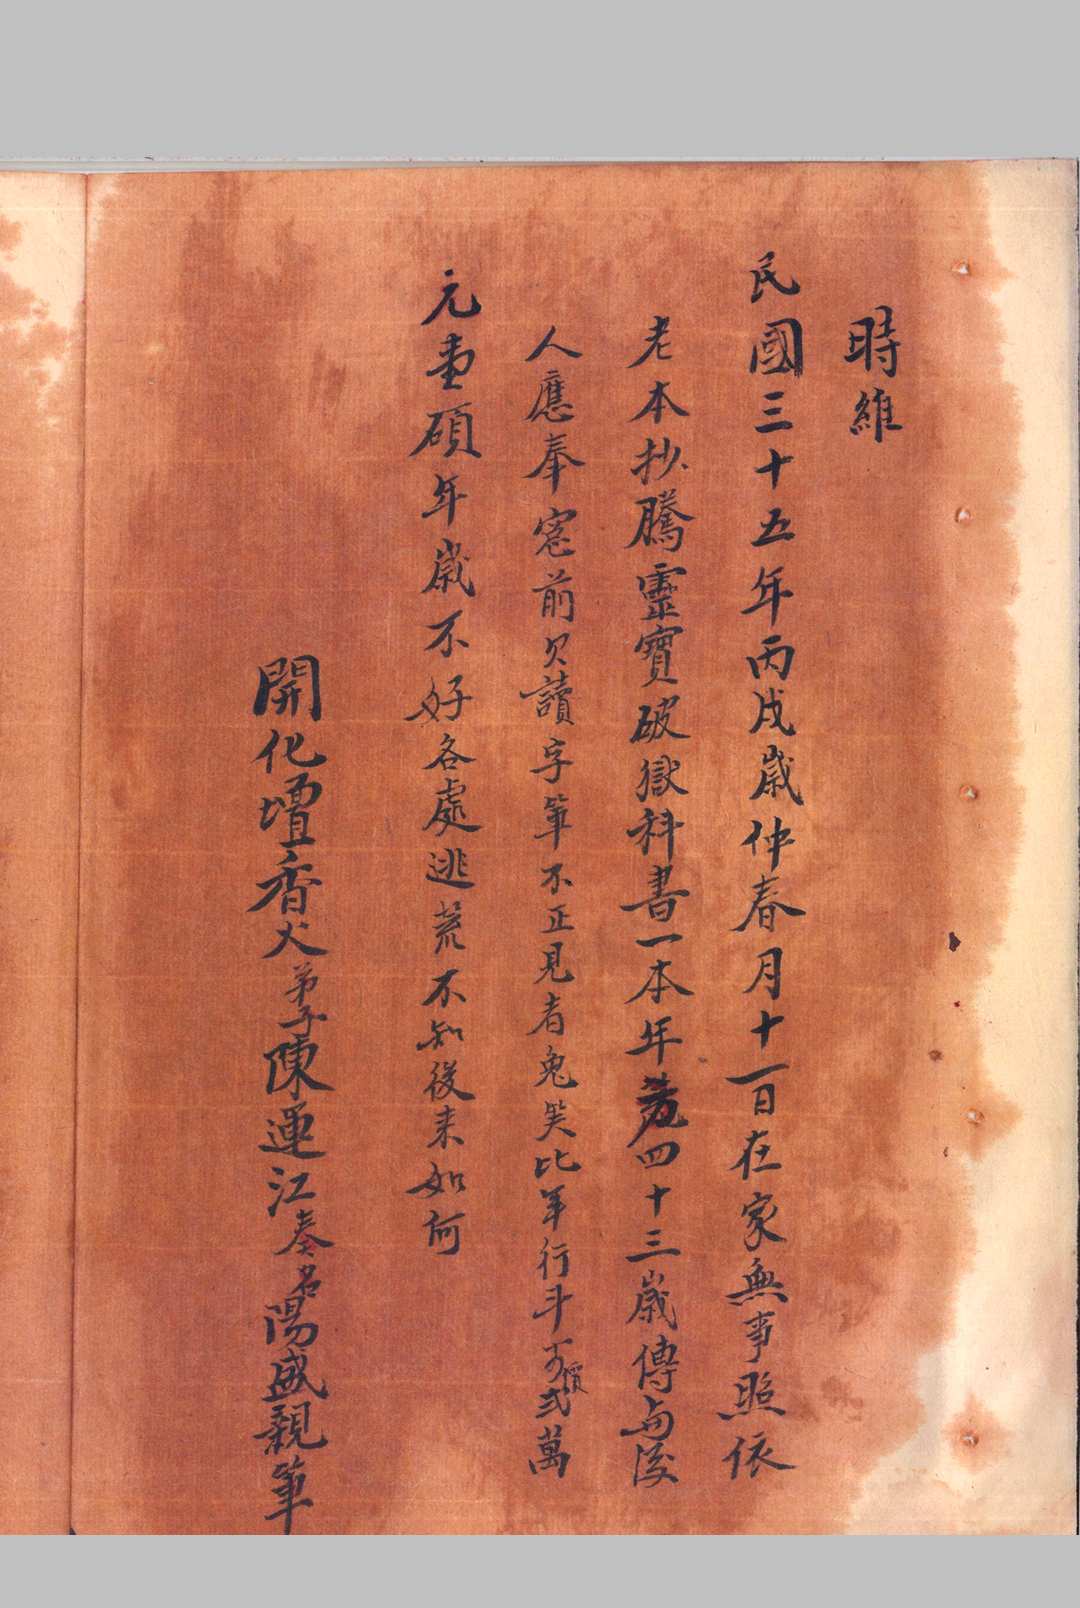 時維
民國三十五年丙戌歲仲春月十一日在家無事照依
老本抄騰靈寶破獄科書一本年四十三歲傳与後
人應奉窓前欠讀字筆不正見者免笑比年行斗谷價弍萬
元重碩年歲不好各處逃荒不知後来如何
開化壇香火弟子陳運江奏名陽盛親筆